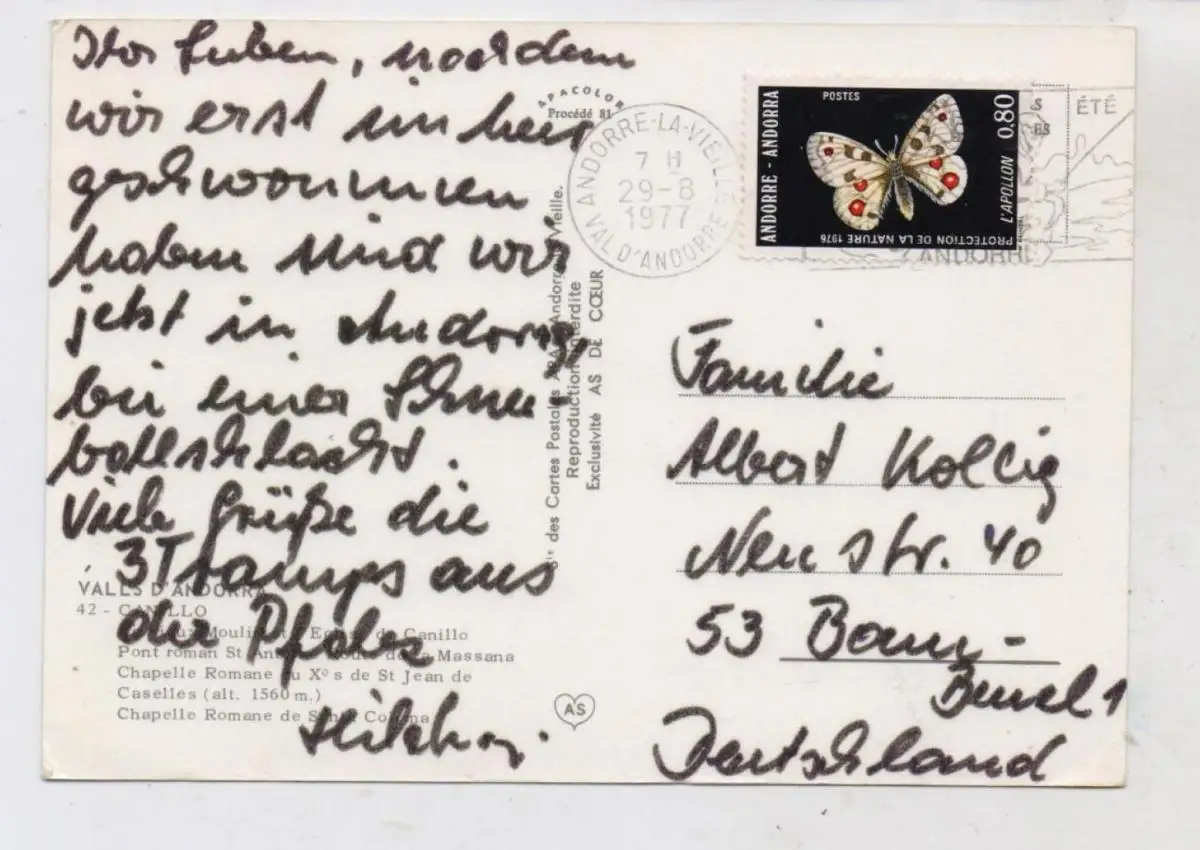 Ihr Lieben, nachdem
wir erst im
geschwommen
haben sind wir
jetzt in Andorra
bei einer Schnee-
ballschlacht.
Viele Grüße die
3 Tramps aus
der Pfalz
APACOLOR
Procédé 81
des Cartes Postales APA Andorre-la-Vieille.
Reproduction interdite
Exclusivité AS DE CŒUR
VALLS D'ANDORRA
42 - CANILLO
Vieux Moulin et Eglise de Canillo
Pont roman St Antoine Route de la Massana
Chapelle Romane du Xº s de St Jean de
Caselles (alt. 1560 m.)
Chapelle Romane de Santa Coloma
AS
ANDORRE-LA-VIEILLE
7 H
29-8
1977
VAL D'ANDORRE
ANDORRE - ANDORRA
POSTES
0,80
L'APOLLON
PROTECTION DE LA NATURE 1976
ÉTÉ
ANDORRE
Familie
Albert Kollig
Neustr. 40
53 Bonn-
Beuel 1
Deutschland